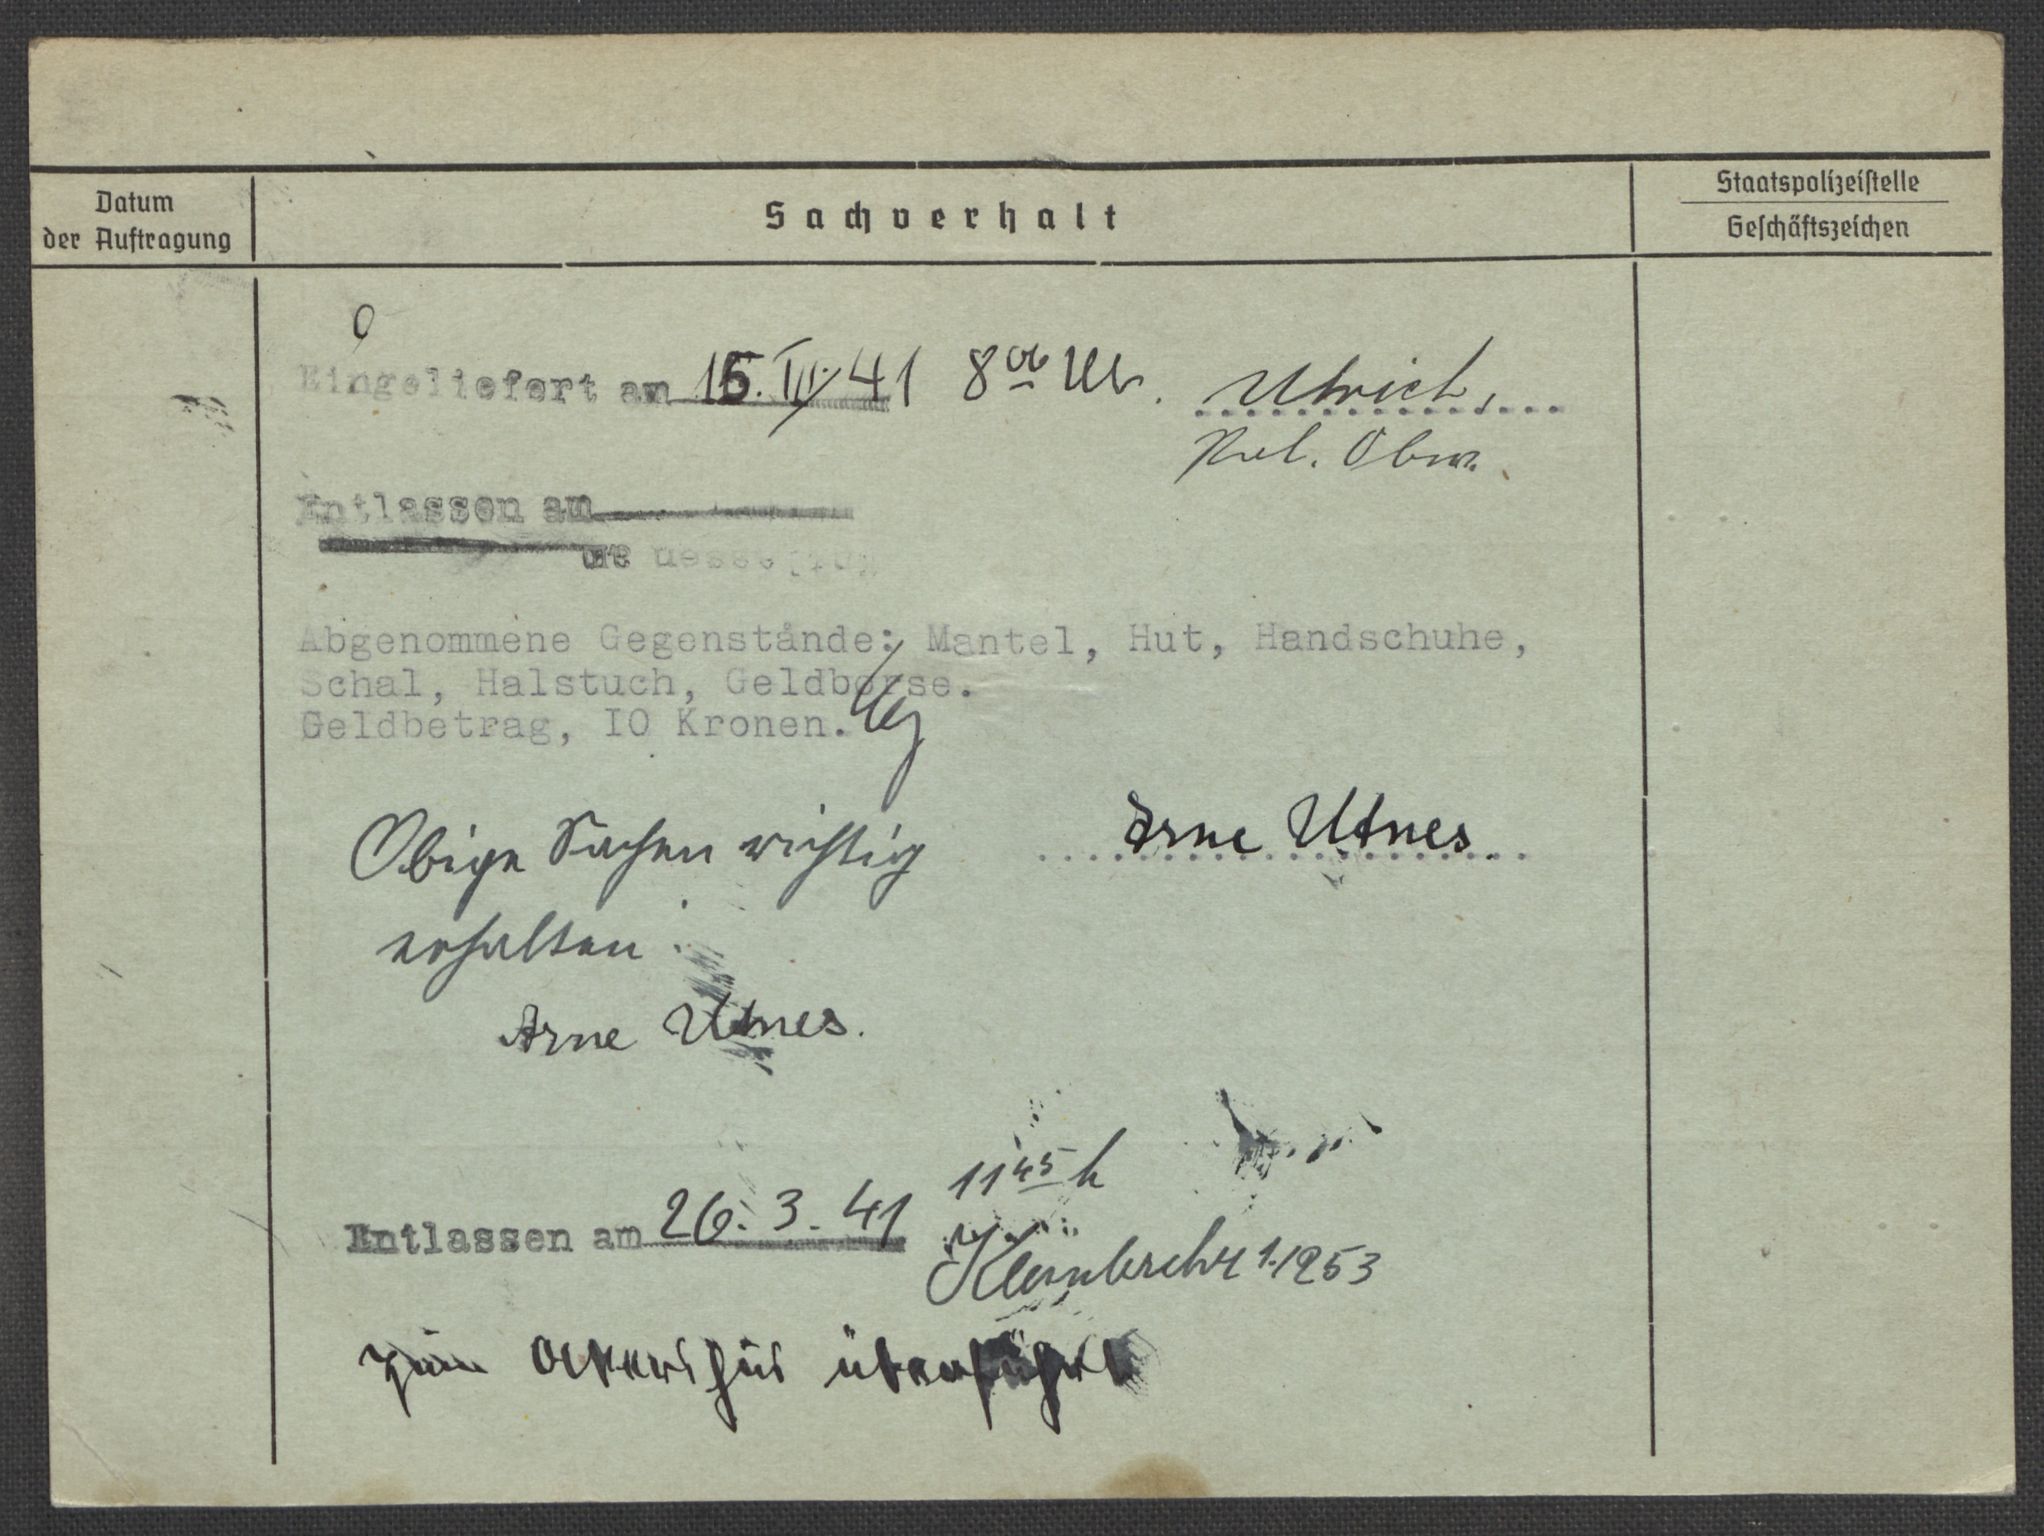 Datum
der Auftragung
Sachverhalt
Staatspolizeistelle
Geschäftszeichen
Eingeliefert am 15. III. 41 8 00 Uhr. Ulrich,
Pol. Obw.
Entlassen am
Abgenommene Gegenstånde: Mantel, Hut, Handschuhe,
Schal, Halstuch, Geldbörse.
Geldbetrag, IO Kronen.
Arne Utnes
Obige Sachen richtig
erhalten:
Arne Utnes.
11 45 h
Entlassen am 26. 3. 41
zum Akershus überführt